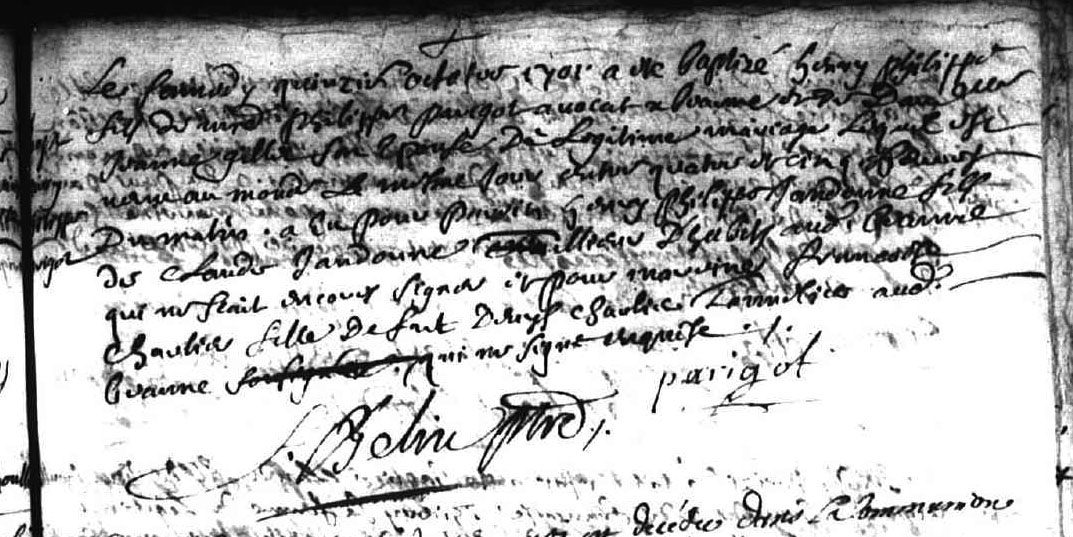 Le samedy quinzie octobre 1701 a ete baptizé henry philippe
fils de mre philippe parigot avocat a beaune et de Dam
jeanne gillie son epouse Du Legitime mariage Lequel est
venu au monde Le mesme jour entre quatre et cinq heures
Du matin. a eu pour parrin henry philippe Jandonne fils
de claude Jandonne D'habits aud. beaune
qui ne scait encour signer et pour marrine francoise
charlies fille de fut Denys charlies Tonnellier aud.
beaune qui ne signe enquise ./.
parigot
Belin ptre
est decedee dans La Communion